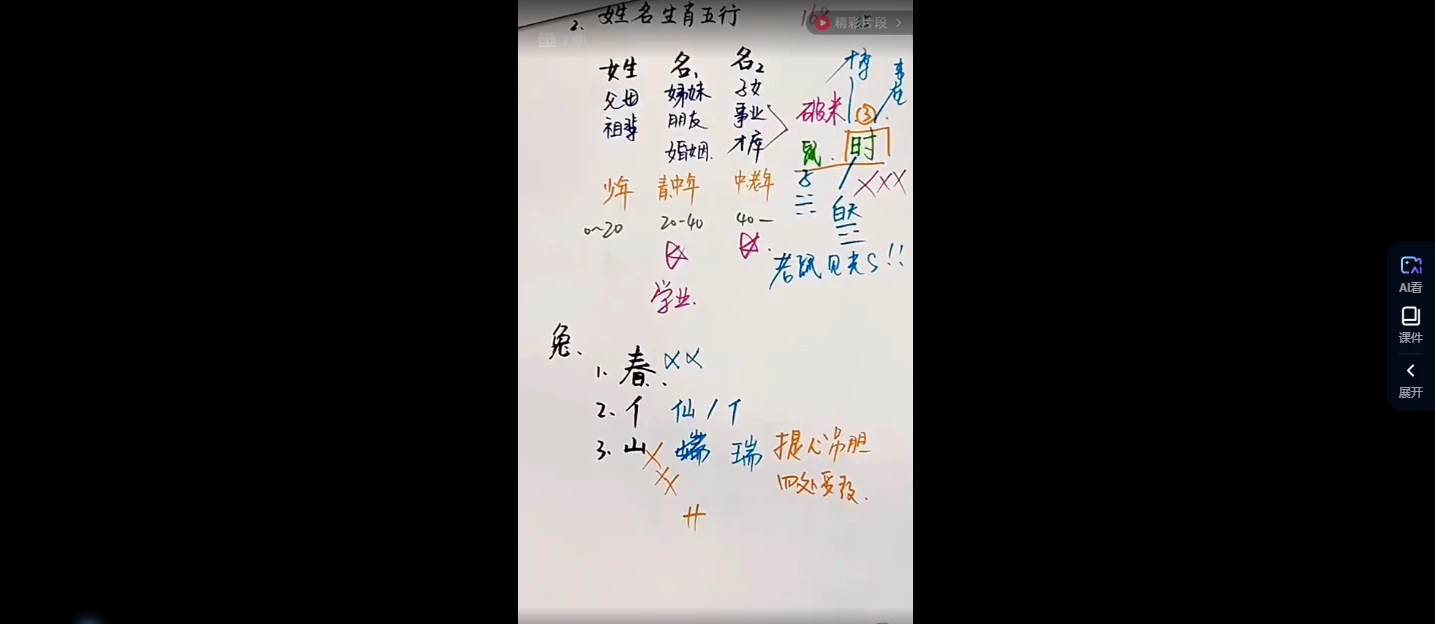 2. 姓名生肖五行
精彩片段
女生 名1 名2
父母 姊妹 子女
祖辈 朋友 事业
婚姻. 才库
少年 青中年 中老年
0~20 20-40 40—
学业.
博
破米 ③
鼠. 时
子 XXX
白天
老鼠见光S!!
兔.
1. 春. XX
2. 个 仙 / 个
3. 山 XXX 端 瑞 提心吊胆
四处受敌.
AI看
课件
展开